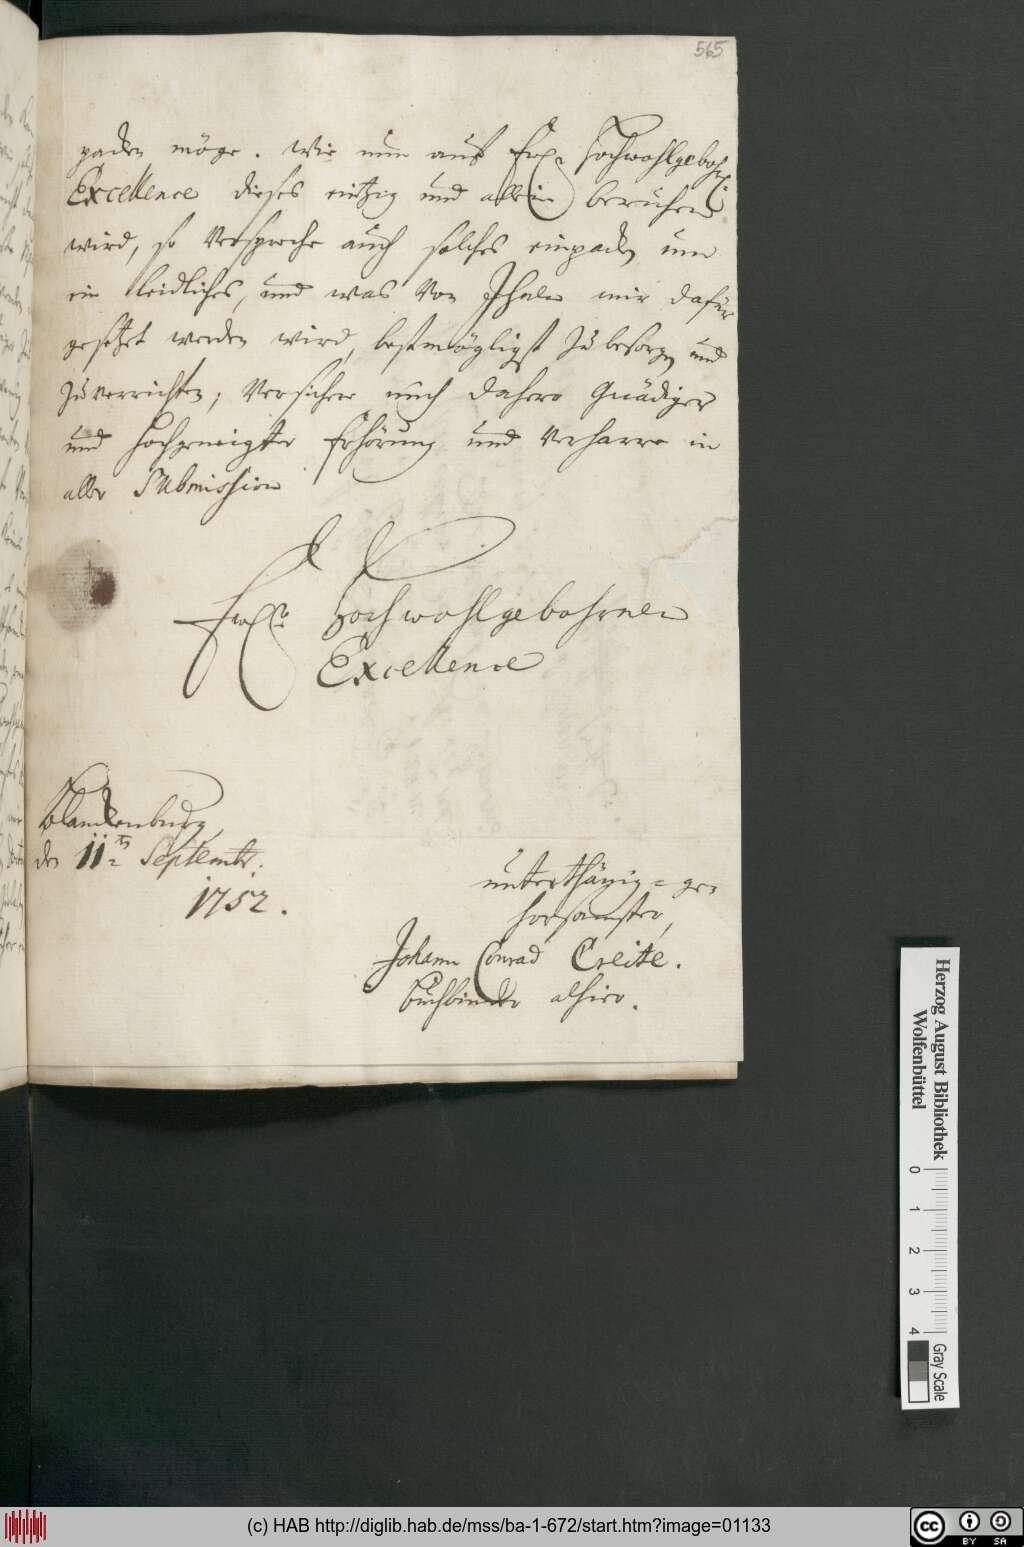 565
paden möge. Wie nun auf Ew. Hochwohlgebohr.
Excellence dieses eintzig und allein beruhen
wird, so verspreche auch solches einpaden um
ein leidliches, und was von Ihnen mir dafür
gesetzet werden wird, bestmögligst zu besorgen und
zu verrichten; Versichere mich dahero Gnädiger
und hochgeneigter Erhörung und verharre in
aller Submission
Ew. Hochwohlgebohrnen
Excellence
Blanckenburg,
den 11ten Septembr.
1752.
unterthänig= ge
horsamster,
Johann Conrad Creite.
buchbinder alhier.
Herzog August Bibliothek
Wolfenbüttel
0 1 2 3 4
Gray Scale
(c) HAB http://diglib.hab.de/mss/ba-1-672/start.htm?image=01133
cc BY SA